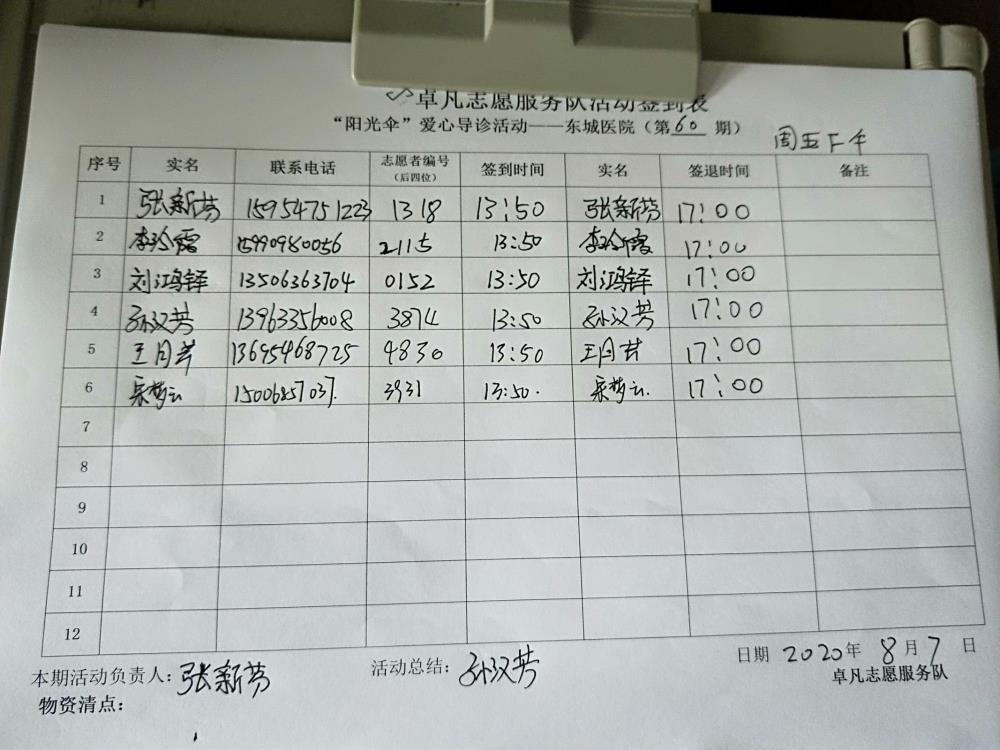 卓凡志愿服务队活动签到表
“阳光伞”爱心导诊活动——东城医院（第60期）
周五下午
序号 实名 联系电话 志愿者编号（后四位） 签到时间 实名 签退时间 备注
1 张新芬 15954751223 1318 13:50 张新芬 17:00
2 李玲霞 15990980056 2115 13:50 李玲霞 17:00
3 刘江鸿铎 13506363704 0152 13:50 刘江鸿铎 17:00
4 孙汉芳 13963356008 3874 13:50 孙汉芳 17:00
5 王月芹 13695468725 4830 13:50 王月芹 17:00
6 梦云 15006857037. 3931 13:50. 梦云. 17:00
7
8
9
10
11
12
本期活动负责人：张新芬 活动总结：孙汉芳 日期 2020年 8月7日
物资清点： 卓凡志愿服务队